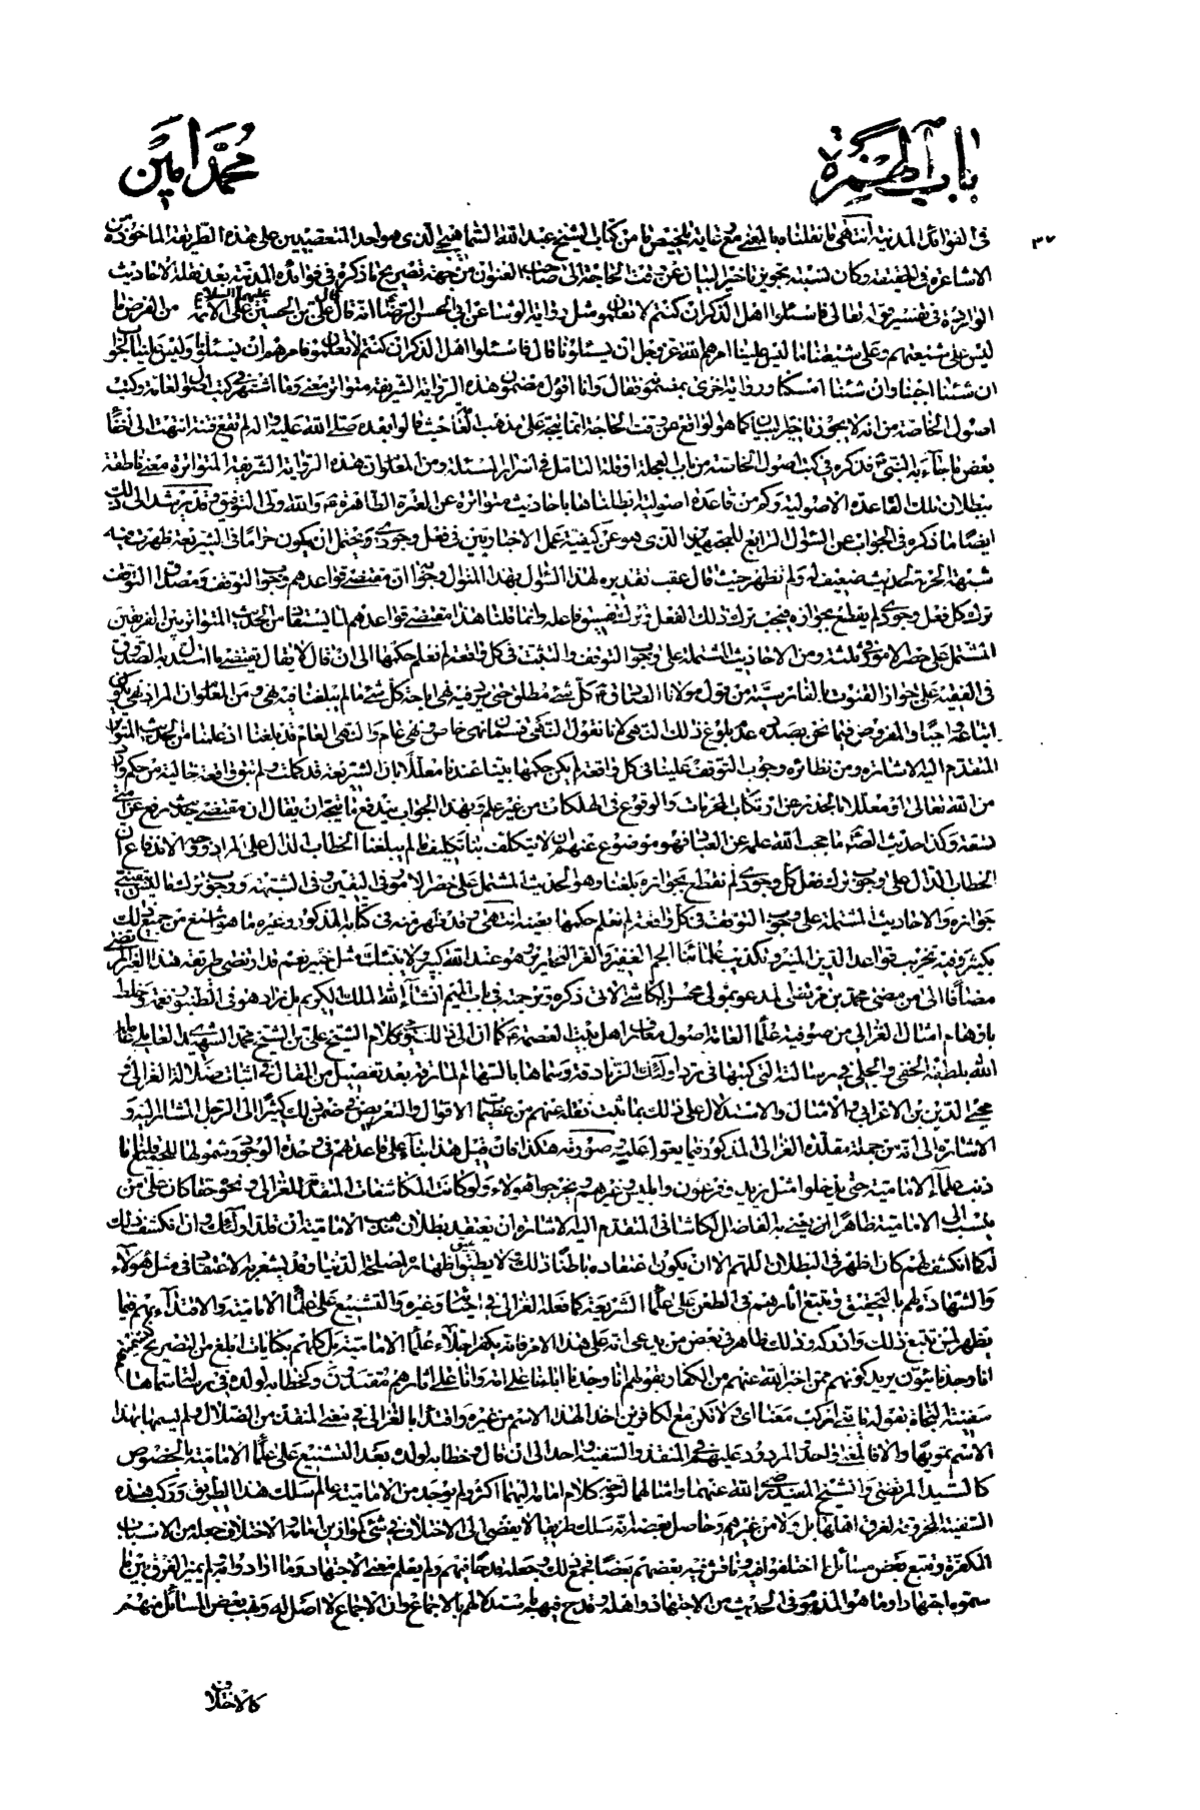 باب الهمزة
محمد امين
٣٧
في الفوائد المدنية انتهى ما نقلناه بالمعنى مع غاية تلخيص منا من كتاب الشيخ عبد الله السماهيجي الذي هو احد المتعصبين على هذه الطريقة الماخوذة من
الاشاعرة في الحقيقة وكان نسبته تجويز تاخير البيان عن وقت الحاجة الى صاحب العنوان من جهة تصريح ما ذكره في فوائده المدنية بعد نقله الاحاديث
الواردة في تفسير قوله تعالى فاسئلوا اهل الذكر ان كنتم لا تعلمون مثل رواية الوشا عن ابي الحسن الرضا انه قال قال علي بن الحسين عليهما السلام على الائمة من الفرض ما
ليس على شيعتهم وعلى شيعتنا ما ليس علينا امرهم الله عز وجل ان يسئلونا قال فاسئلوا اهل الذكر ان كنتم لا تعلمون فامرهم ان يسئلونا وليس علينا الجواب
ان شئنا اجبنا وان شئنا امسكنا ورواية اخرى بمضمونه فقال وانا اقول مضمون هذه الرواية الشريفة متواتر معنى وما اشتهر في كتب اصول العامة وكتب
اصول الخاصة من انه لا يجوز تاخير البيان كما هو الواقع عن وقت الحاجة انما يتجه على مذهب العامة حيث قالوا بعده صلى الله عليه وآله لم تقع فتنة انتهت الى اخفاء
بعض ما جاء به النبي ص فذكره في كتب اصول الخاصة من باب العجلة او قلة التامل في اسرار المسئلة ومن المعلوم ان هذه الرواية الشريفة المتواترة معنى ناطقة
ببطلان تلك القاعدة الاصولية وكم من قاعدة اصولية ابطلناها باحاديث متواترة عن العترة الطاهرة ع والله ولي التوفيق وقد يرشد الى ذلك
ايضا ما ذكره في الجواب عن السؤال الرابع للمجتهدين الذي هو عن كيفية عمل الاخباريين في فعل وجودي يحتمل ان يكون حراما في الشريعة ظهرت فيه
شبهة الحرمة لحديث ضعيف او لم تظهر حيث قال عقب تقديره لهذا السؤال بهذا المنوال وجوابه ان مقتضى قواعدهم وجوب التوقف ومصداق التوقف
ترك كل فعل وجودي لم يقطع بجوازه فيجب ترك ذلك الفعل وترك تفسيق فاعله وانما قلنا هذا مقتضى قواعدهم لما يستفاد من الحديث المتواتر بين الفريقين
المشتمل على حصر الامور في ثلثة ومن الاحاديث المشتملة على وجوب التوقف والتثبت في كل واقعة لم نعلم حكمها الى ان قال لا يقال يقتضي ما استدل به الصدوق
في الفقيه على جواز القنوت بالفارسية من قول مولانا الصادق ع كل شيء مطلق حتى يرد فيه نهي اباحة كل شيء ما لم يبلغنا فيه نهي ومن المعلوم ان المراد نهي يكون
اتباعه واجبا والمفروض فيما نحن بصدده عدم بلوغ ذلك النهي لانا نقول النهي قسمان نهي خاص ونهي عام والنهي العام قد بلغنا اذ علمنا من الحديث المتواتر
المتقدم اليه الاشارة ومن نظائره وجوب التوقف علينا في كل واقعة لم يكن حكمها بينا عندنا معللا بان الشريعة قد كملت ولم تبق واقعة خالية من حكم وارد
من الله تعالى او معللا بالحذر عن ارتكاب المحرمات والوقوع في الهلكات من غير علم وبهذا الجواب يندفع ما يتجه ان يقال ان مقتضى حديث رفع عن امتي
تسعة وكذا حديث الصادق ما حجب الله علمه عن العباد فهو موضوع عنهم ان لا يتكلف بنا تكليف ما لم يبلغنا الخطاب الدال على المراد وجه الاندفاع ان
الخطاب الدال على وجوب ترك فعل كل وجودي لم نقطع بجوازه بلغنا وهو الحديث المشتمل على حصر الامور في اليقين وفي الشبهة ووجوب ترك ما ليس بيقيني
جوازه والاحاديث المشتملة على وجوب التوقف في كل واقعة لم نعلم حكمها بعينه انتهى وقد ظهر منه في كتابه المذكور وغيره ما هو اشنع من جميع ذلك
بكثير وفيه تخريب قواعد الدين المبين وتكذيب علمائنا الجم الغفير والقر الخضارير وهو عند الله كبير ولا ينبئك مثل خبير نعم قد ارتضى طريقة هذا الغير المرتضى
مضافا الى من مضى محمد بن مرتضى المدعو بمولى محسن الكاشي الاتي ذكره وترجمته في باب الميم انشاء الله الملك الكريم بل زاد هو في الطنبور نغمة وخلط
باوهام امثال الغزالي من صوفية علماء العامة اصول معارف اهل بيت العصمة ع كما ان الى ذلك يومي كلام الشيخ علي بن الشيخ محمد الشهيدي العاملي عاملهما
الله بلطفه الخفي والجلي في رسالته التي كتبها في رد اولئك الزنادقة وسماها بالسهام المارقة بعد تفصيل من المقال في اثبات ضلالة الغزالي و
محيي الدين بن الاعرابي والامثال والاستدلال على ذلك بما ثبت نقله عنهم من عظيمات الاقوال والتعريض في ضمن ذلك كثيرا الى الرجل المشار اليه و
الاشارة الى انه من جملة مقلدة الغزالي المذكور فيما يعول عليه صورته هكذا فان قيل هذا بناء على قاعدتهم في وحدة الوجود وشمولها للجميع قلنا ما
ذنب علماء الامامية حتى يدخلوا مثل يزيد وفرعون وابليس وغيرهم ويخرجوا هؤلاء ولو كانت المكاشفات المتقدمة للغزالي ونحوه حقا كان على من
ينسب الى الامامية ظاهرا يعني به الفاضل الكاشاني المتقدم اليه الاشارة ان يعتقد بطلان مذهب الامامية ان قلد اولئك وان انكشف ذلك
له كما انكشف لهم كان اظهر في البطلان اللهم الا ان يكون اعتقاده باطنا ذلك ولا يطيق اظهاره لمصلحة الدنيا وقد يشعر به الاعتقاد في مثل هؤلاء
والشهادة لهم بالتحقيق وتتبع اثارهم في الطعن على علماء الشريعة كما فعله الغزالي في احيائه وغيره والتشنيع على علماء الامامية والاقتداء بهم فيما
يظهر لمن تتبع ذلك وادركه وذلك ظاهر في بعض من يدعي انه على هذا الامر فانه يكفر اجلاء علماء الامامية بل كلهم بكنايات ابلغ من التصريح كتسميتهم
انا وجدنائيون يريد كونهم ممن اخبر الله عنهم من الكفار بقولهم انا وجدنا آباءنا على امة وانا على اثارهم مقتدون وكخطابه لولده في رسالته سماها
سفينة النجاة بقوله يا بني اركب معنا اي ولا تكن مع الكافرين اخذا لهذا الاسم من غيره واقتداء بالغزالي في تسمية المنقذ من الضلال ولم يسمها بهذا
الاسم تمويها والا فالمعنى واحد المردود عليهم في المنقذ والسفينة واحد الى ان قال وخطابه لولده بعد التشنيع على علماء الامامية بالخصوص
كالسيد المرتضى والشيخ المفيد رضي الله عنهما وامثالهما لتوجه كلام امامه اليهما اكثر ولم يوجد من الامامية عالم سلك هذا الطريق وركب هذه
السفينة المخروقة لغرق اهلها بل ولا من غيرهم وحاصل بعضه انه سلك طريقا لا يفضي الى الاختلاف في شيء كموازين امامه والاختلاف جعله من الاسباب
المكفرة وتتبع بعض مسائل ما اختلفوا فيه وناقش فيه بعضهم بعضا فجمع ذلك وجعله قدحا فيهم ولم يعلم معنى الاجتهاد وما ارادوا به ولم يميز الفرق بين ما
سموه اجتهادا وما هو المذموم في الحديث من الاجتهاد واهله وقدح فيهم باستدلالهم بالاجماع وان الاجماع لا اصل له وفي بعض المسائل منهم
كالاختلاف